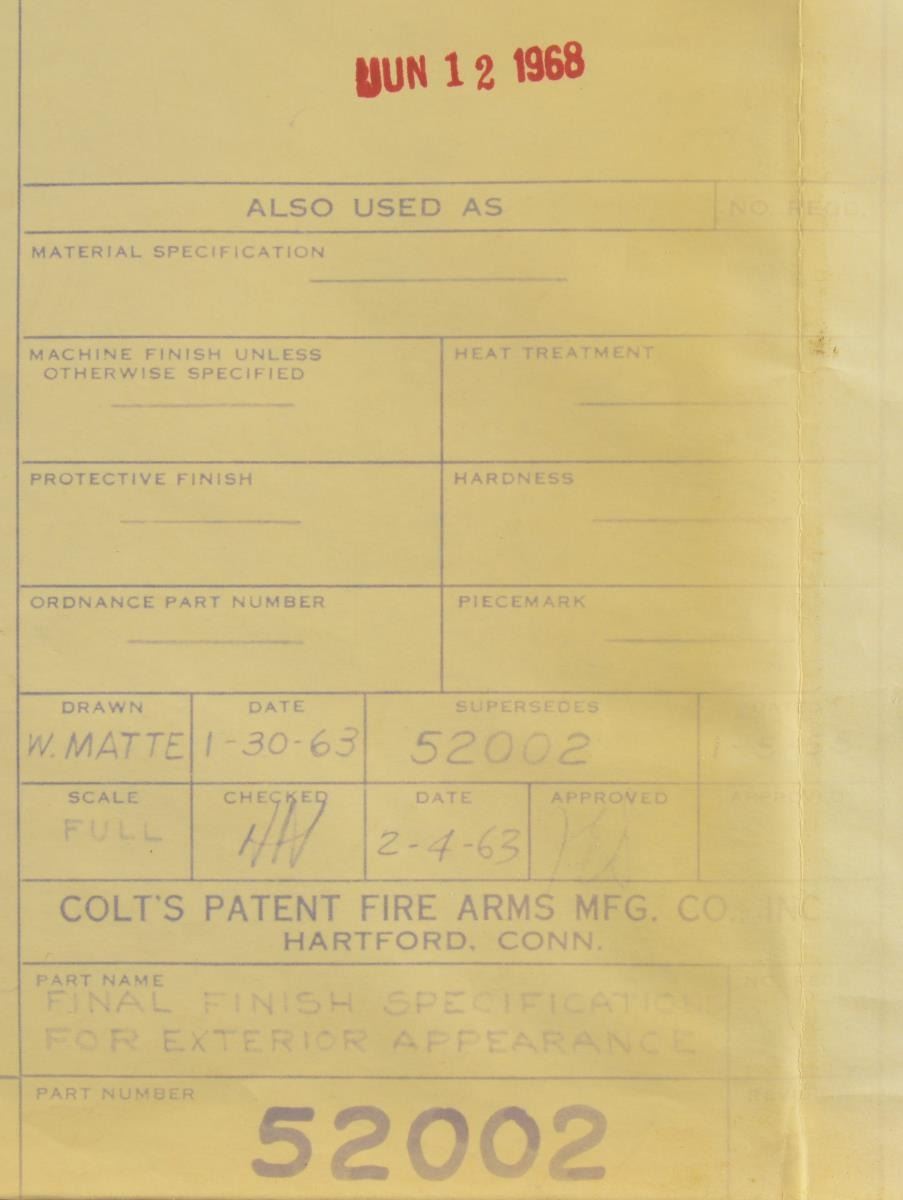 JUN 12 1968
ALSO USED AS
NO. REQD.
MATERIAL SPECIFICATION
MACHINE FINISH UNLESS
OTHERWISE SPECIFIED
HEAT TREATMENT
PROTECTIVE FINISH
HARDNESS
ORDNANCE PART NUMBER
PIECEMARK
DRAWN
W. MATTE
DATE
1-30-63
SUPERSEDES
52002
DATE
SCALE
FULL
CHECKED
DATE
2-4-63
APPROVED
APPROVED
COLT'S PATENT FIRE ARMS MFG. CO. INC
HARTFORD, CONN.
PART NAME
FINAL FINISH SPECIFICATIONS
FOR EXTERIOR APPEARANCE
PART NUMBER
52002